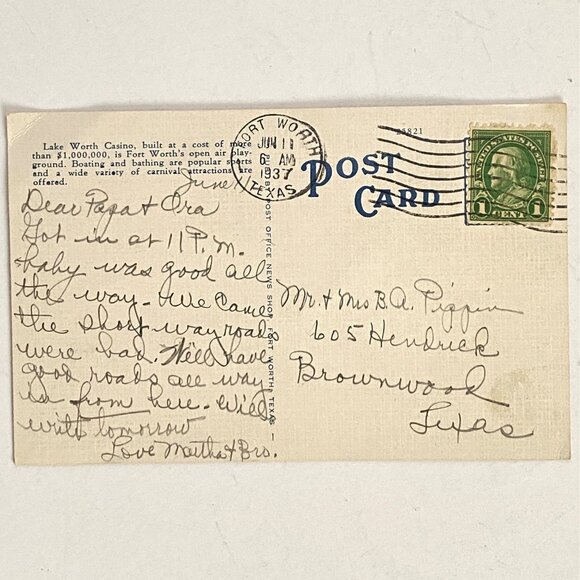 Lake Worth Casino, built at a cost of more
than $1,000,000, is Fort Worth's open air play-
ground. Boating and bathing are popular sports
and a wide variety of carnival attractions are
offered.
FORT WORTH
JUN 11
6 AM
1937
TEXAS
25821
UNITED STATES POSTAGE
1 CENT 1
POST
CARD
POST OFFICE NEWS SHOP, FORT WORTH, TEXAS
June
Dear Papa & Ora
Got in at 11 P.m.
baby was good all
the way - We came
the short way roads
were bad. Will have
good roads all way
in from here. Will
write tomorrow
Love Martha & Bro.
Mr. & Mrs B.A. Pippin
605 Hendrick
Brownwood
Texas